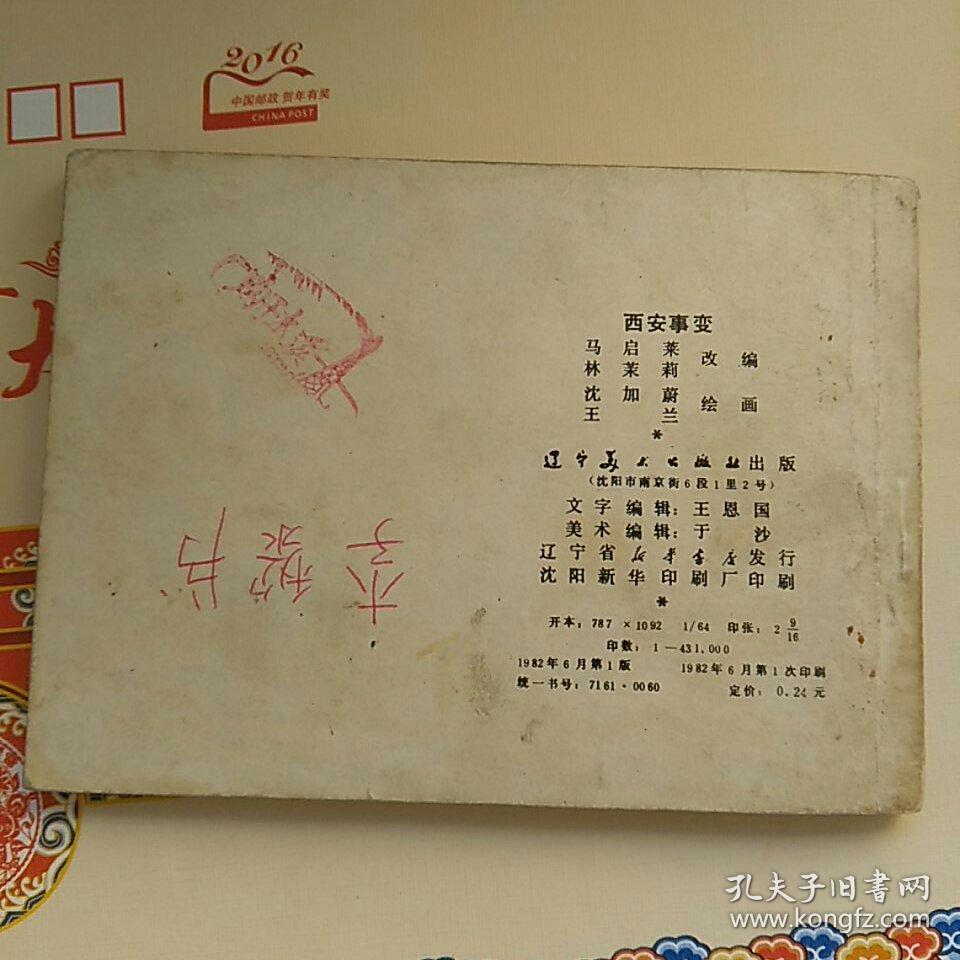 2016
中国邮政 贺年有奖
CHINA POST
西安事变
马启莱 改编
林茉莉
沈加蔚 绘画
王兰
*
辽宁美术出版社出版
（沈阳市南京街6段1里2号）
文字编辑：王恩国
美术编辑：于沙
辽宁省新华书店发行
沈阳新华印刷厂印刷
*
开本：787×1092 1/64 印张：2 9/16
印数：1—431,000
1982年6月第1版 1982年6月第1次印刷
统一书号：7161·0060 定价：0.24元
孔夫子旧書网
www.kongfz.com